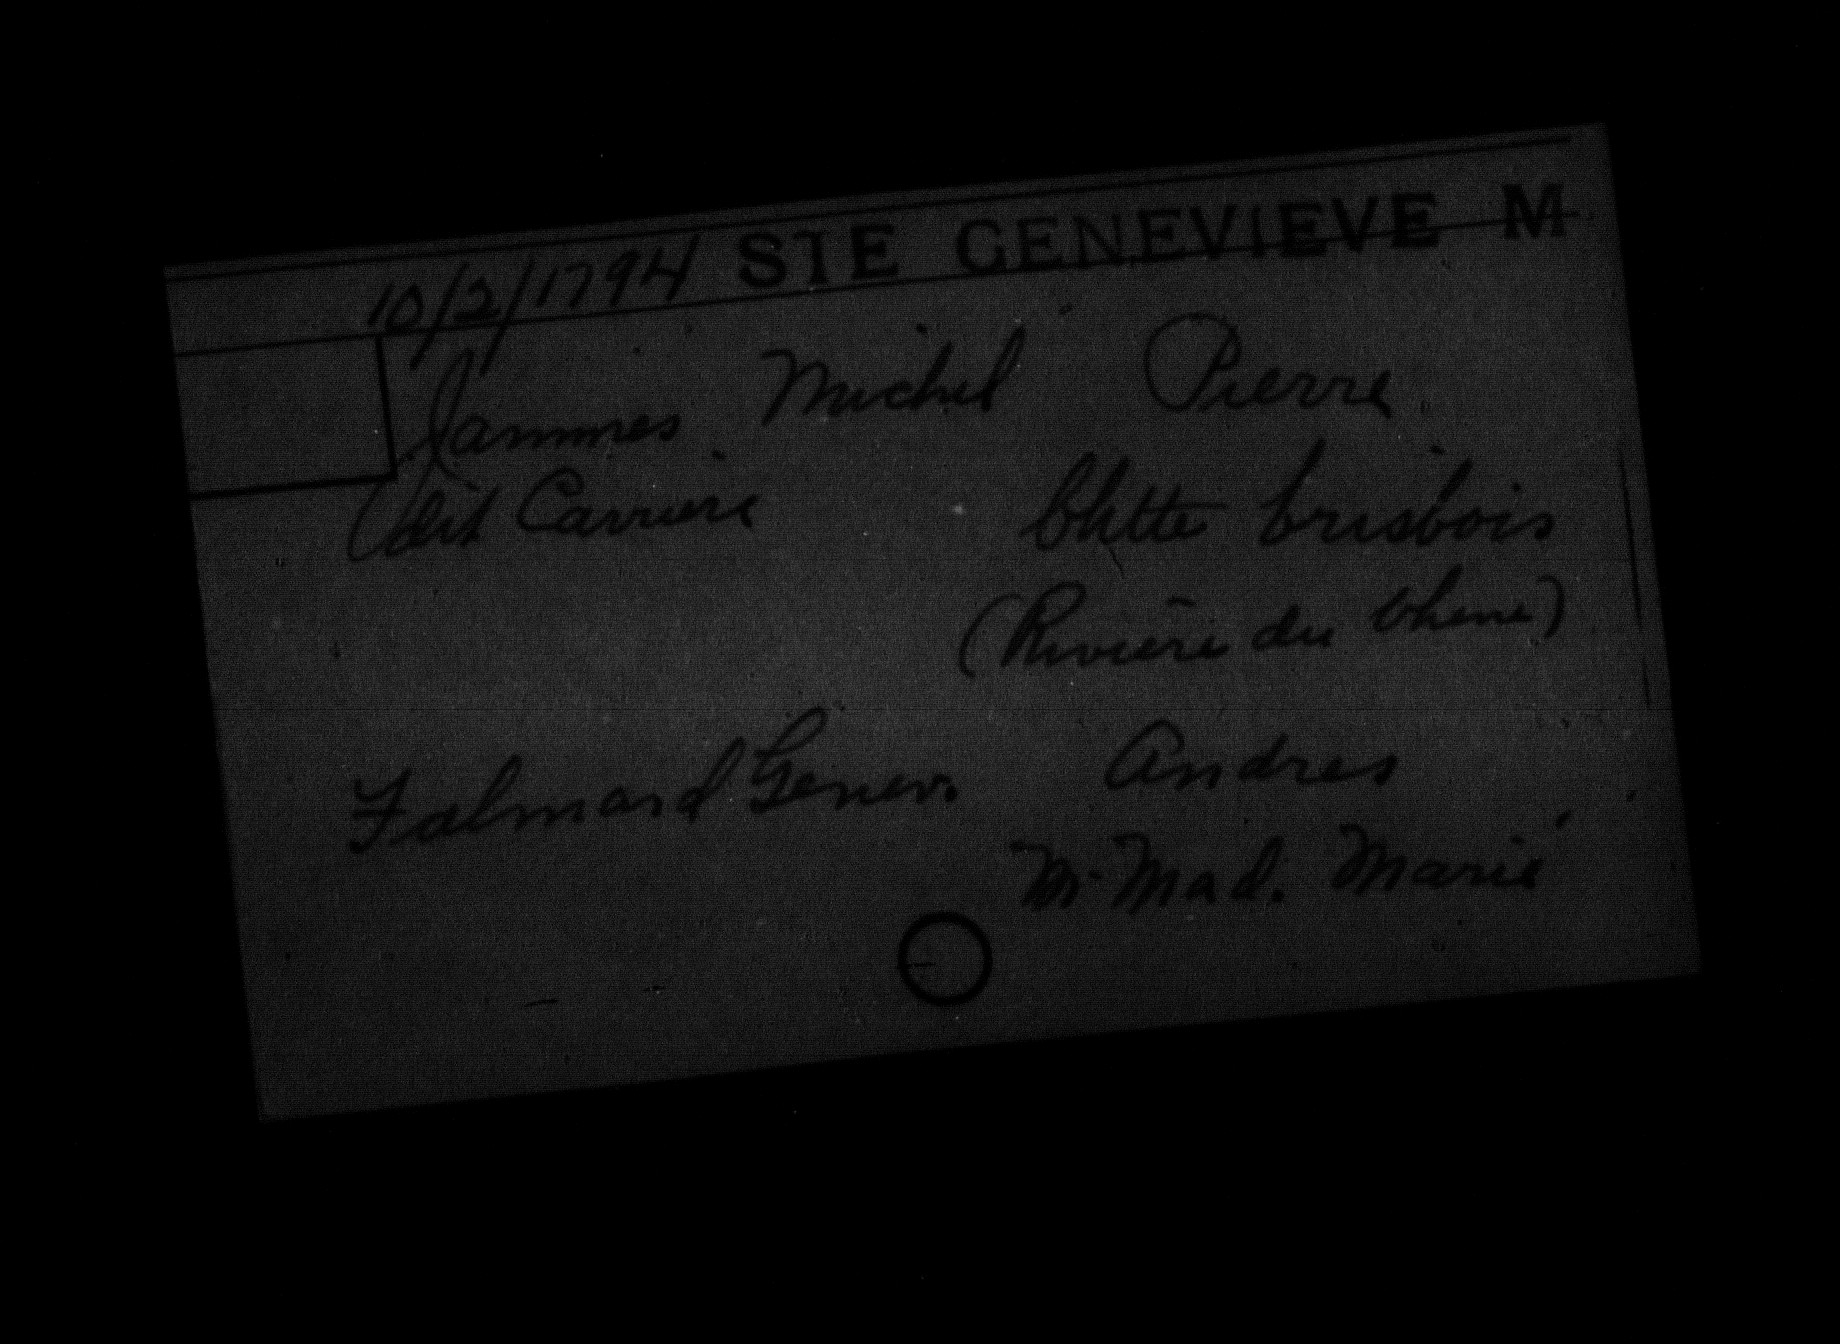 10/2/1794 STE GENEVIEVE M
Jammes Michel Pierre
(dit Carriere Chtte brisbois
(Rivière du Chene)
Falmard Genev. Andres
M. Mad. Marié